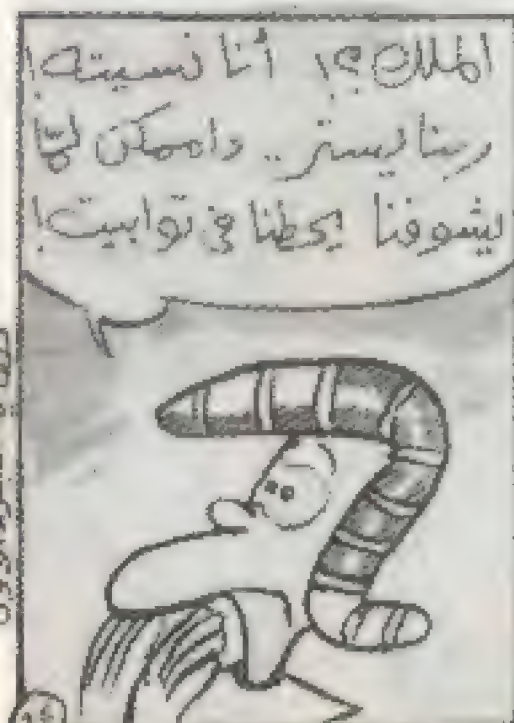 الملك؟! أنا نسيته!
ربنا يستر.. دا ممكن لمّا
يشوفنا يحطنا في توابيت!